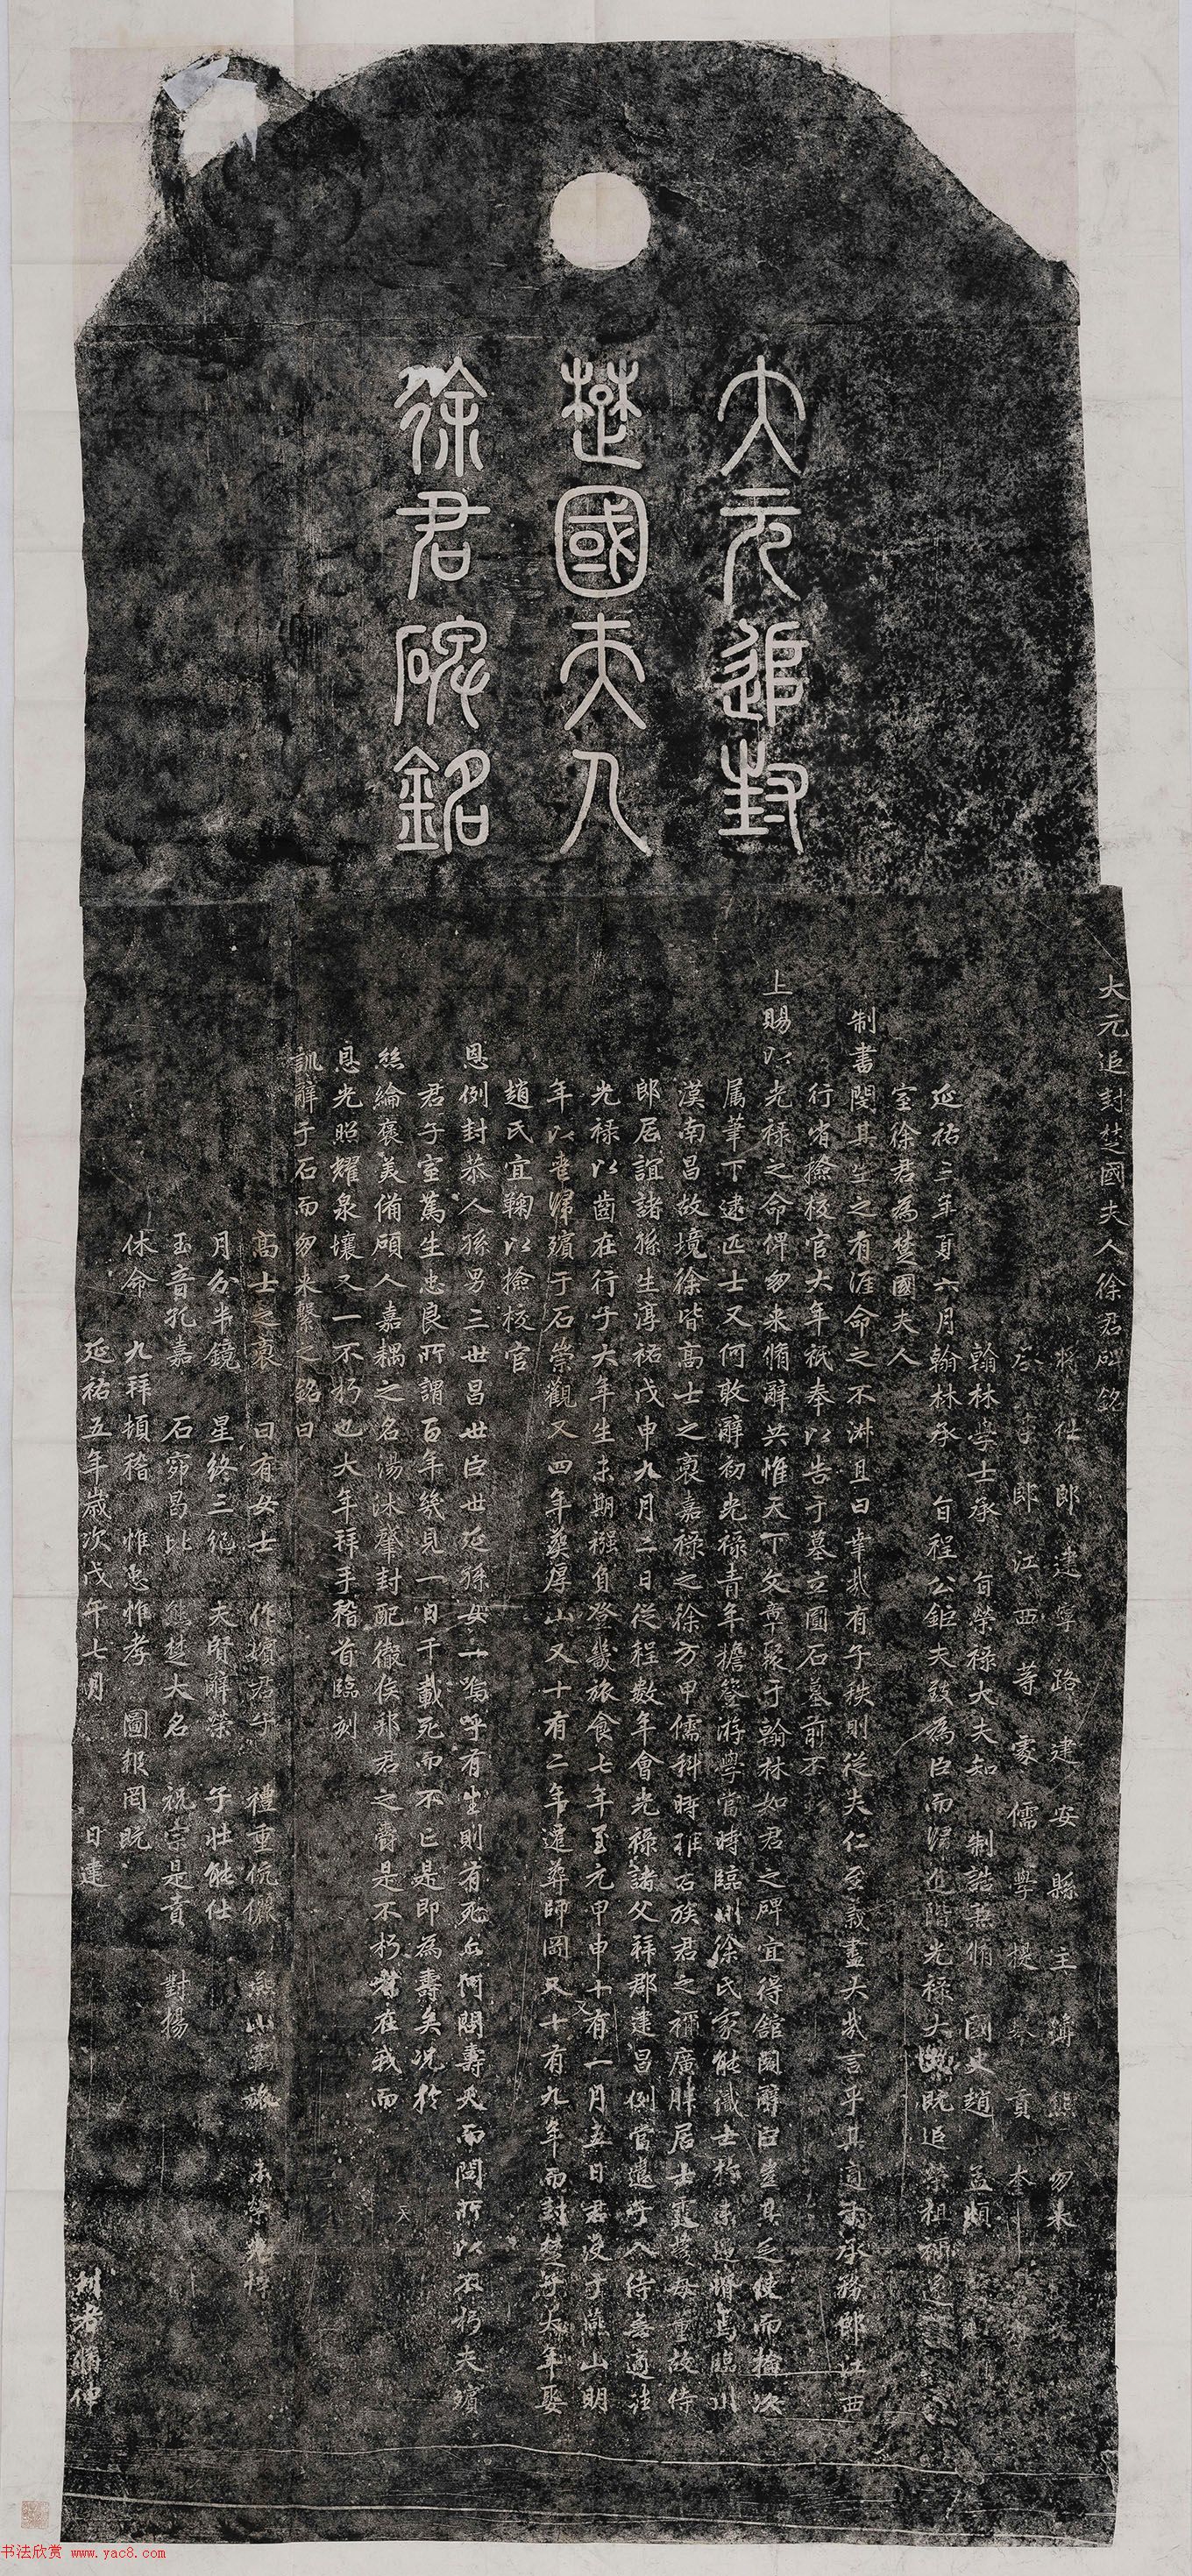 大元追封
楚國夫人
徐君碑銘
大元追封楚國夫人徐君碑銘
將仕郎建寧路建安縣主簿熊朋來
郎江西等處儒學提
翰林學士承旨榮祿大夫知制誥兼脩國史趙孟頫
延祐三年夏六月翰林承旨程公鉅夫致為臣而歸進階光祿大夫既追榮祖禰
室徐君為楚國夫人
制書閔其生之有涯命之不淑且曰幸哉有子秩則從夫仁至義盡大哉言乎其適承務郎江西
行省撿校官大年祇奉以告于墓立圓石墓前不
上賜以光祿之命俾朋來脩辭共惟天下文章聚于翰林如君之碑宜得館閣辭臣豈其乏使而掄次
属筆下逮匹士又何敢辭初光祿青年擔簦游學當時臨川徐氏家能儀士於臨川
漢南昌故境徐皆高士之裔嘉祿之徐方甲儒科時推石族君之禰廣胖居士霆發母董故侍
郎居誼諸孫生淳祐戊申九月二日從程數年會光祿諸父拜郡建昌例當遣子入侍無適往
光祿以齒在行子大年生未期襁負登畿旅食七年至元甲申十有一月五日君没于燕山明
年以喪歸殯于石崇觀又四年葬厚山又十有二年遷葬師岡又十有九年而封楚子大年娶
趙氏宜鞠以撿校官
恩例封恭人孫男三世昌世臣世延孫女一嗚呼有生則有死云何問壽夭而問所以不朽夫殯
君子室篤生忠良所謂百年幾見一日千載死而不亡是即為壽矣况於
絲綸褒美備碩人嘉耦之名湯沐肇封配徹侯邦君之爵是不朽者在我而
恩光照耀泉壤又一不朽也大年拜手稽首臨刻
訓辭于石而朋來繫之銘曰
高士之裔 曰有女士 作嬪君子 禮重伉儷 燕山羈旅
月分半鏡 星終三紀 夫賢辭榮 子壯能仕
玉音孔嘉 石窌昌比 熊楚大名 祝宗是責 對揚
休命 九拜頓稽 惟忠惟孝 圖報罔既
延祐五年歲次戊午七月 日建
书法欣赏 www.yac8.com